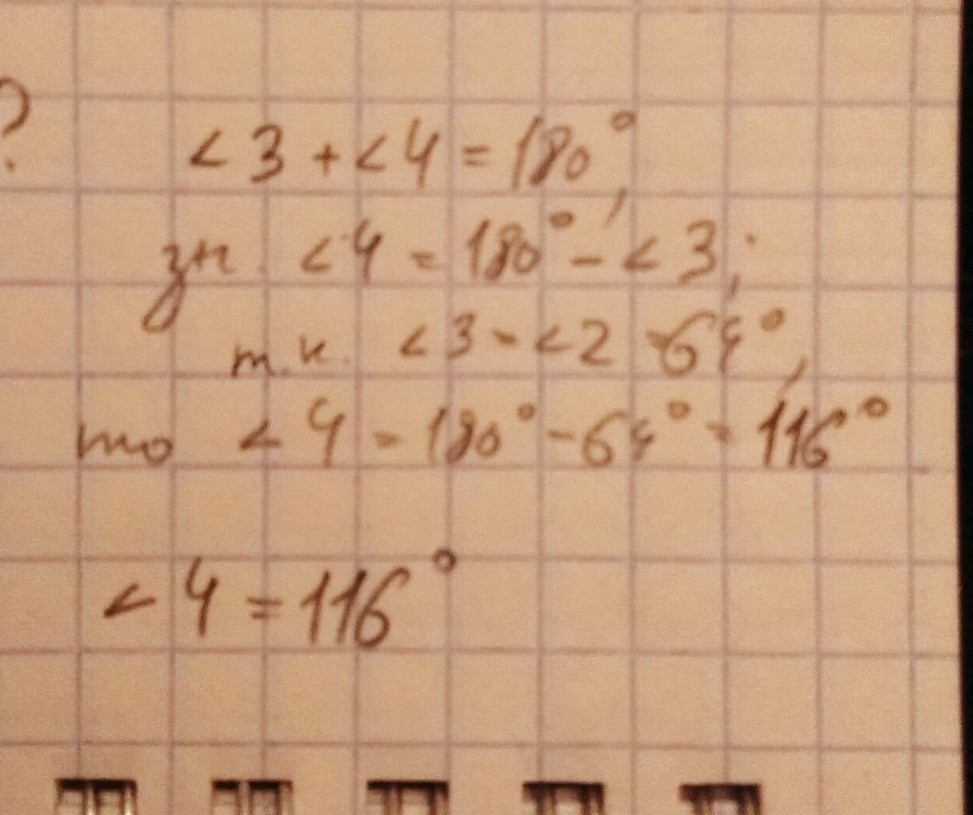 ?
<3 + <4 = 180°,
зн. <4 = 180° - <3;
т.к. <3 = <2 = 64°,
то <4 = 180° - 64° = 116°
<4 = 116°